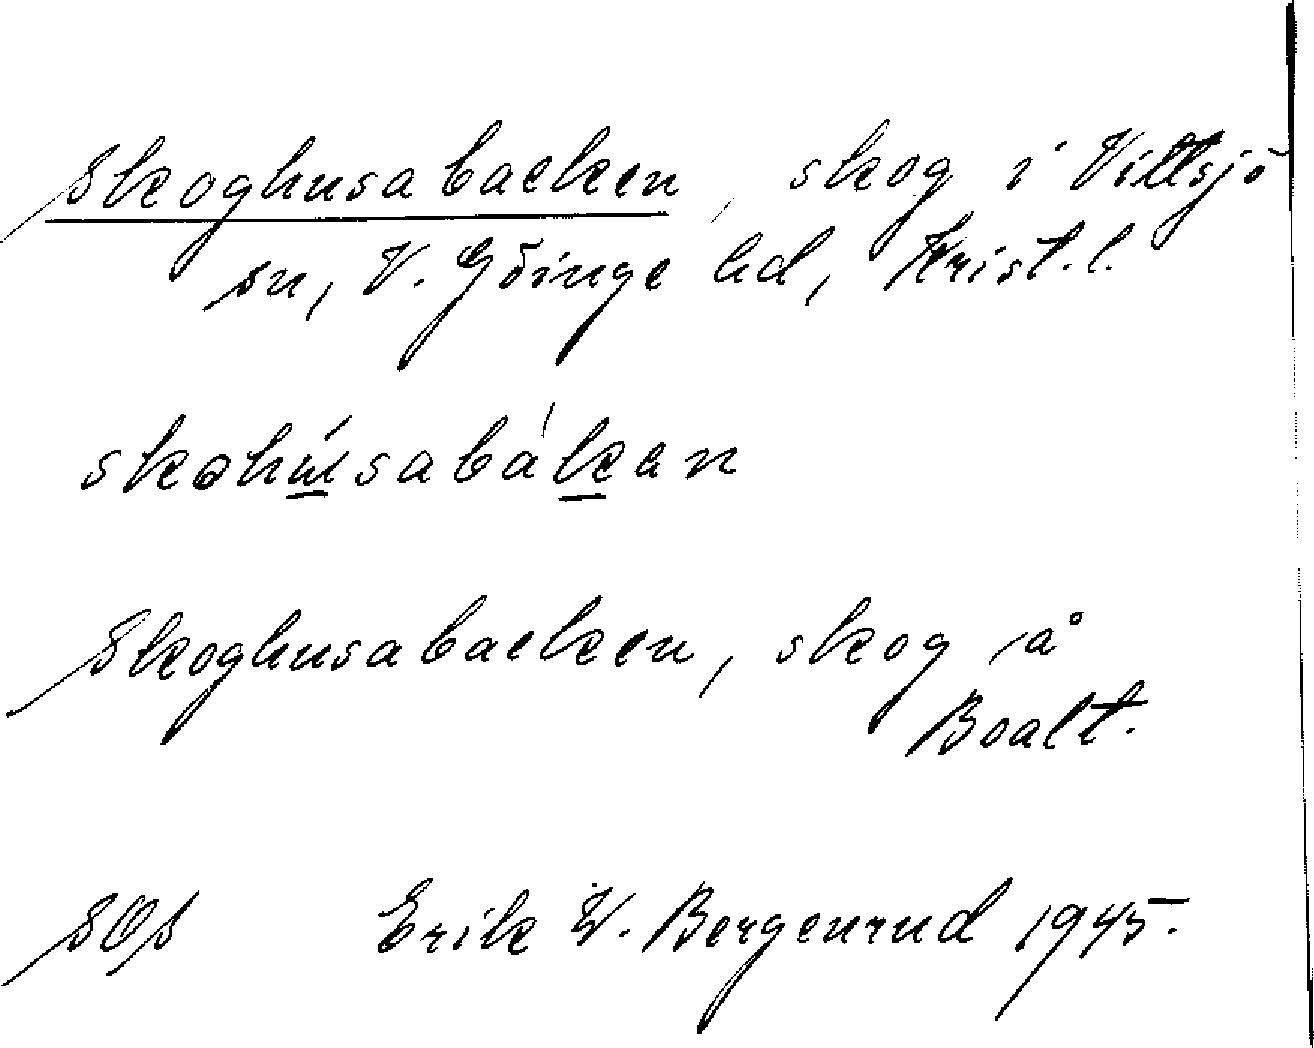 Skoghusabacken, skog i Vittsjö
sn, V. Göinge hd, Krist.l.
skohúsabákan
Skoghusabacken, skog å
Boalt.
SOS Erik W. Bergenrud 1945.